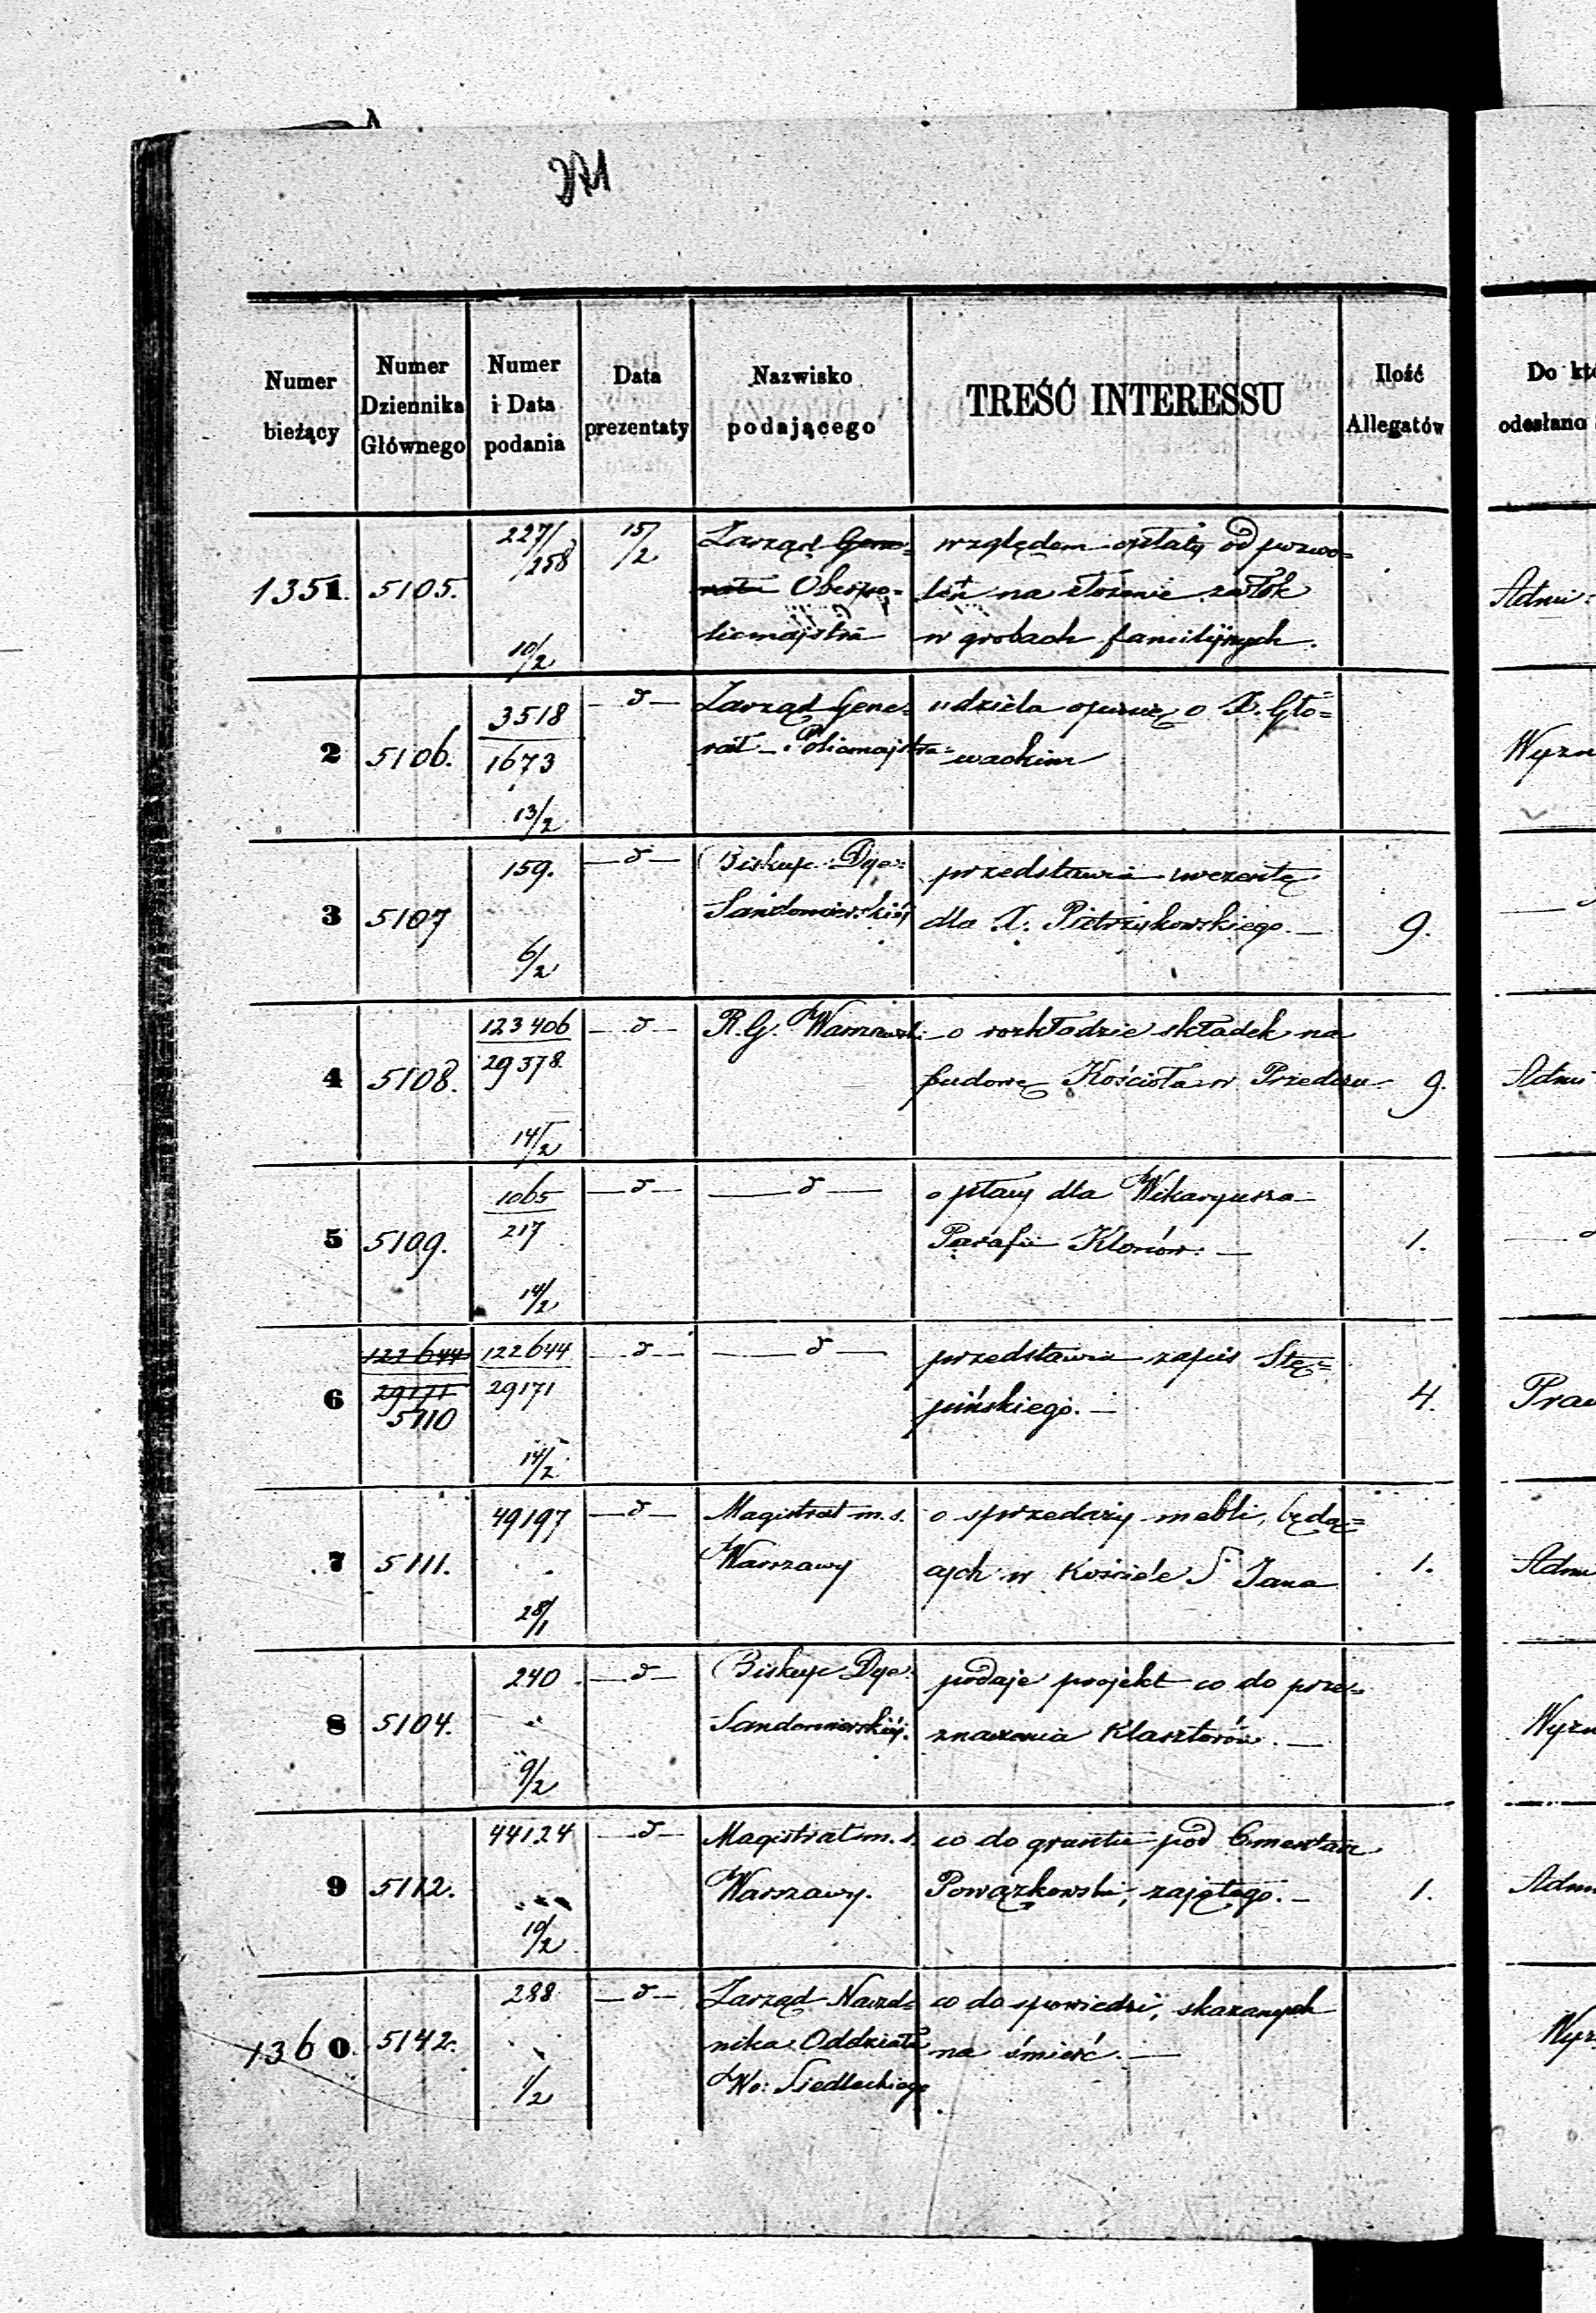 271
Numer bieżący
Numer Dziennika Głównego
Numer i Data podania
Data prezentaty
Nazwisko podającego
TREŚĆ INTERESSU
Ilość Allegatów
Do któ
odesłano
1351. 5105. 227/258 10/2 15/2
Zarząd Gene=
rała Oberpo=
licmajstra
względem opłaty od pozwo=
leń na złożenie zwłok
w grobach familijnych.
Admi=
2 5106. 3518 1673 13/2 —d—
Zarząd Gene=
rał-Policmajstra
udziela opinię o X. Gło=
wackim
Wyzn
3 5107 159. 6/2 —d—
Biskup Dye=
Sandomierskiéj
przedstawia
dla X. Pietrzykowskiego.—
9.
4 5108. 123406 29378. 14/2 —d—
R. G. Warszawski
o rozkładzie składek na
budowę Kościoła w
9.
Admi
5 5109. 1065 217 14/2 —d— —d—
o płacy dla Wikaryusza
Parafii Klonów.—
1.
6 122644 29171 5110 122644 29171 14/2 —d— —d—
przedstawia zapis Stę=
pińskiego.—
4.
Praw
7 5111. 49197 28/1 —d—
Magistrat m. s.
Warszawy
o sprzedaży mebli, będą=
cych w Kościele S Jana
1.
Adm
8 5104. 240 9/2 —d—
Biskup Dye.
Sandomierskiéj.
podaje projekt co do prze=
znaczenia Klasztorów.—
Wyzn
9 5112. 44124 10/2 —d—
Magistrat m. s.
Warszawy.
co do gruntu pod Cmentarz
Powązkowski, zajętego.—
1.
Adm
1360. 5142. 288 1/2 —d—
Zarząd Naczel=
nika Oddziału
Wo: Siedleckiego
co do spowiedzi, skazanych
na śmierć.—
Wyz